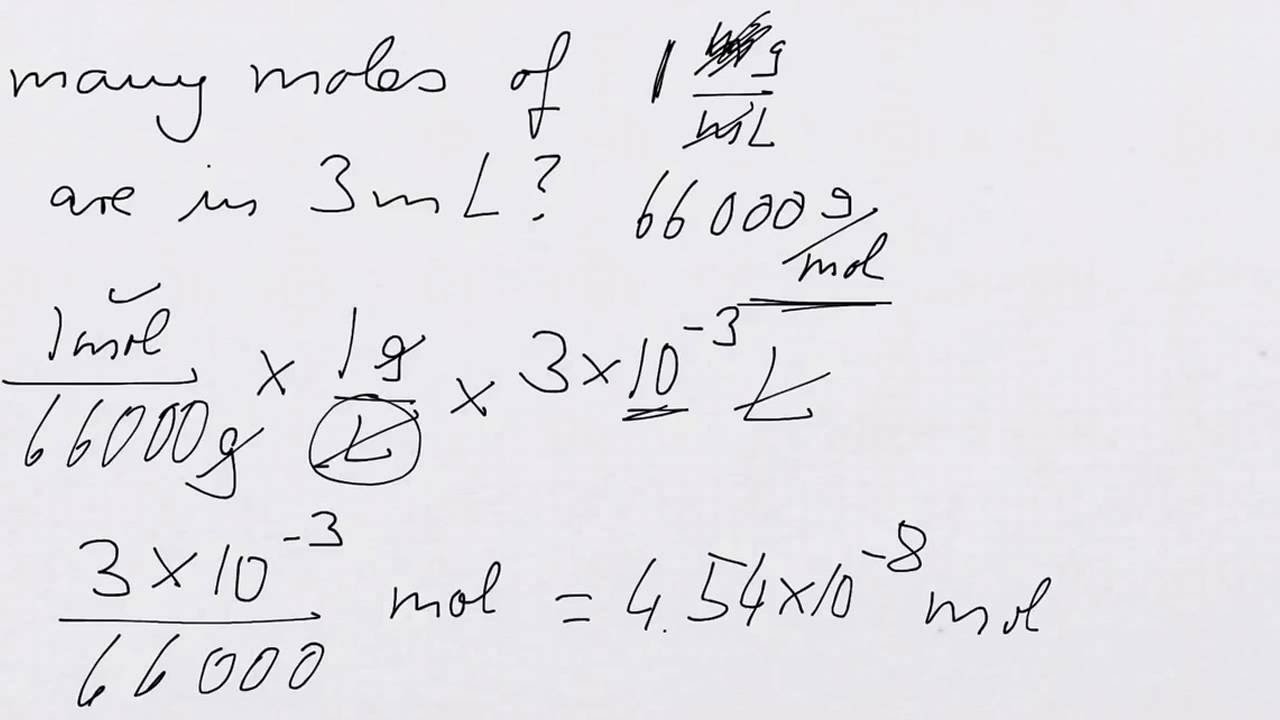 many moles of 1 g/mL
are in 3mL? 66000 g/mol
1mol/66000g × 1g/L × 3×10⁻³ L
3×10⁻³/66000 mol = 4.54×10⁻⁸ mol